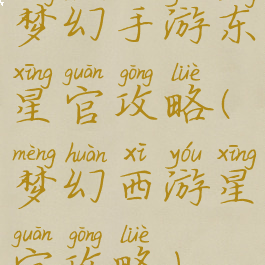 梦幻手游东
xīng guān gōng lüè
星官攻略(
mèng huàn xī yóu xīng
梦幻西游星
guān gōng lüè
官攻略)